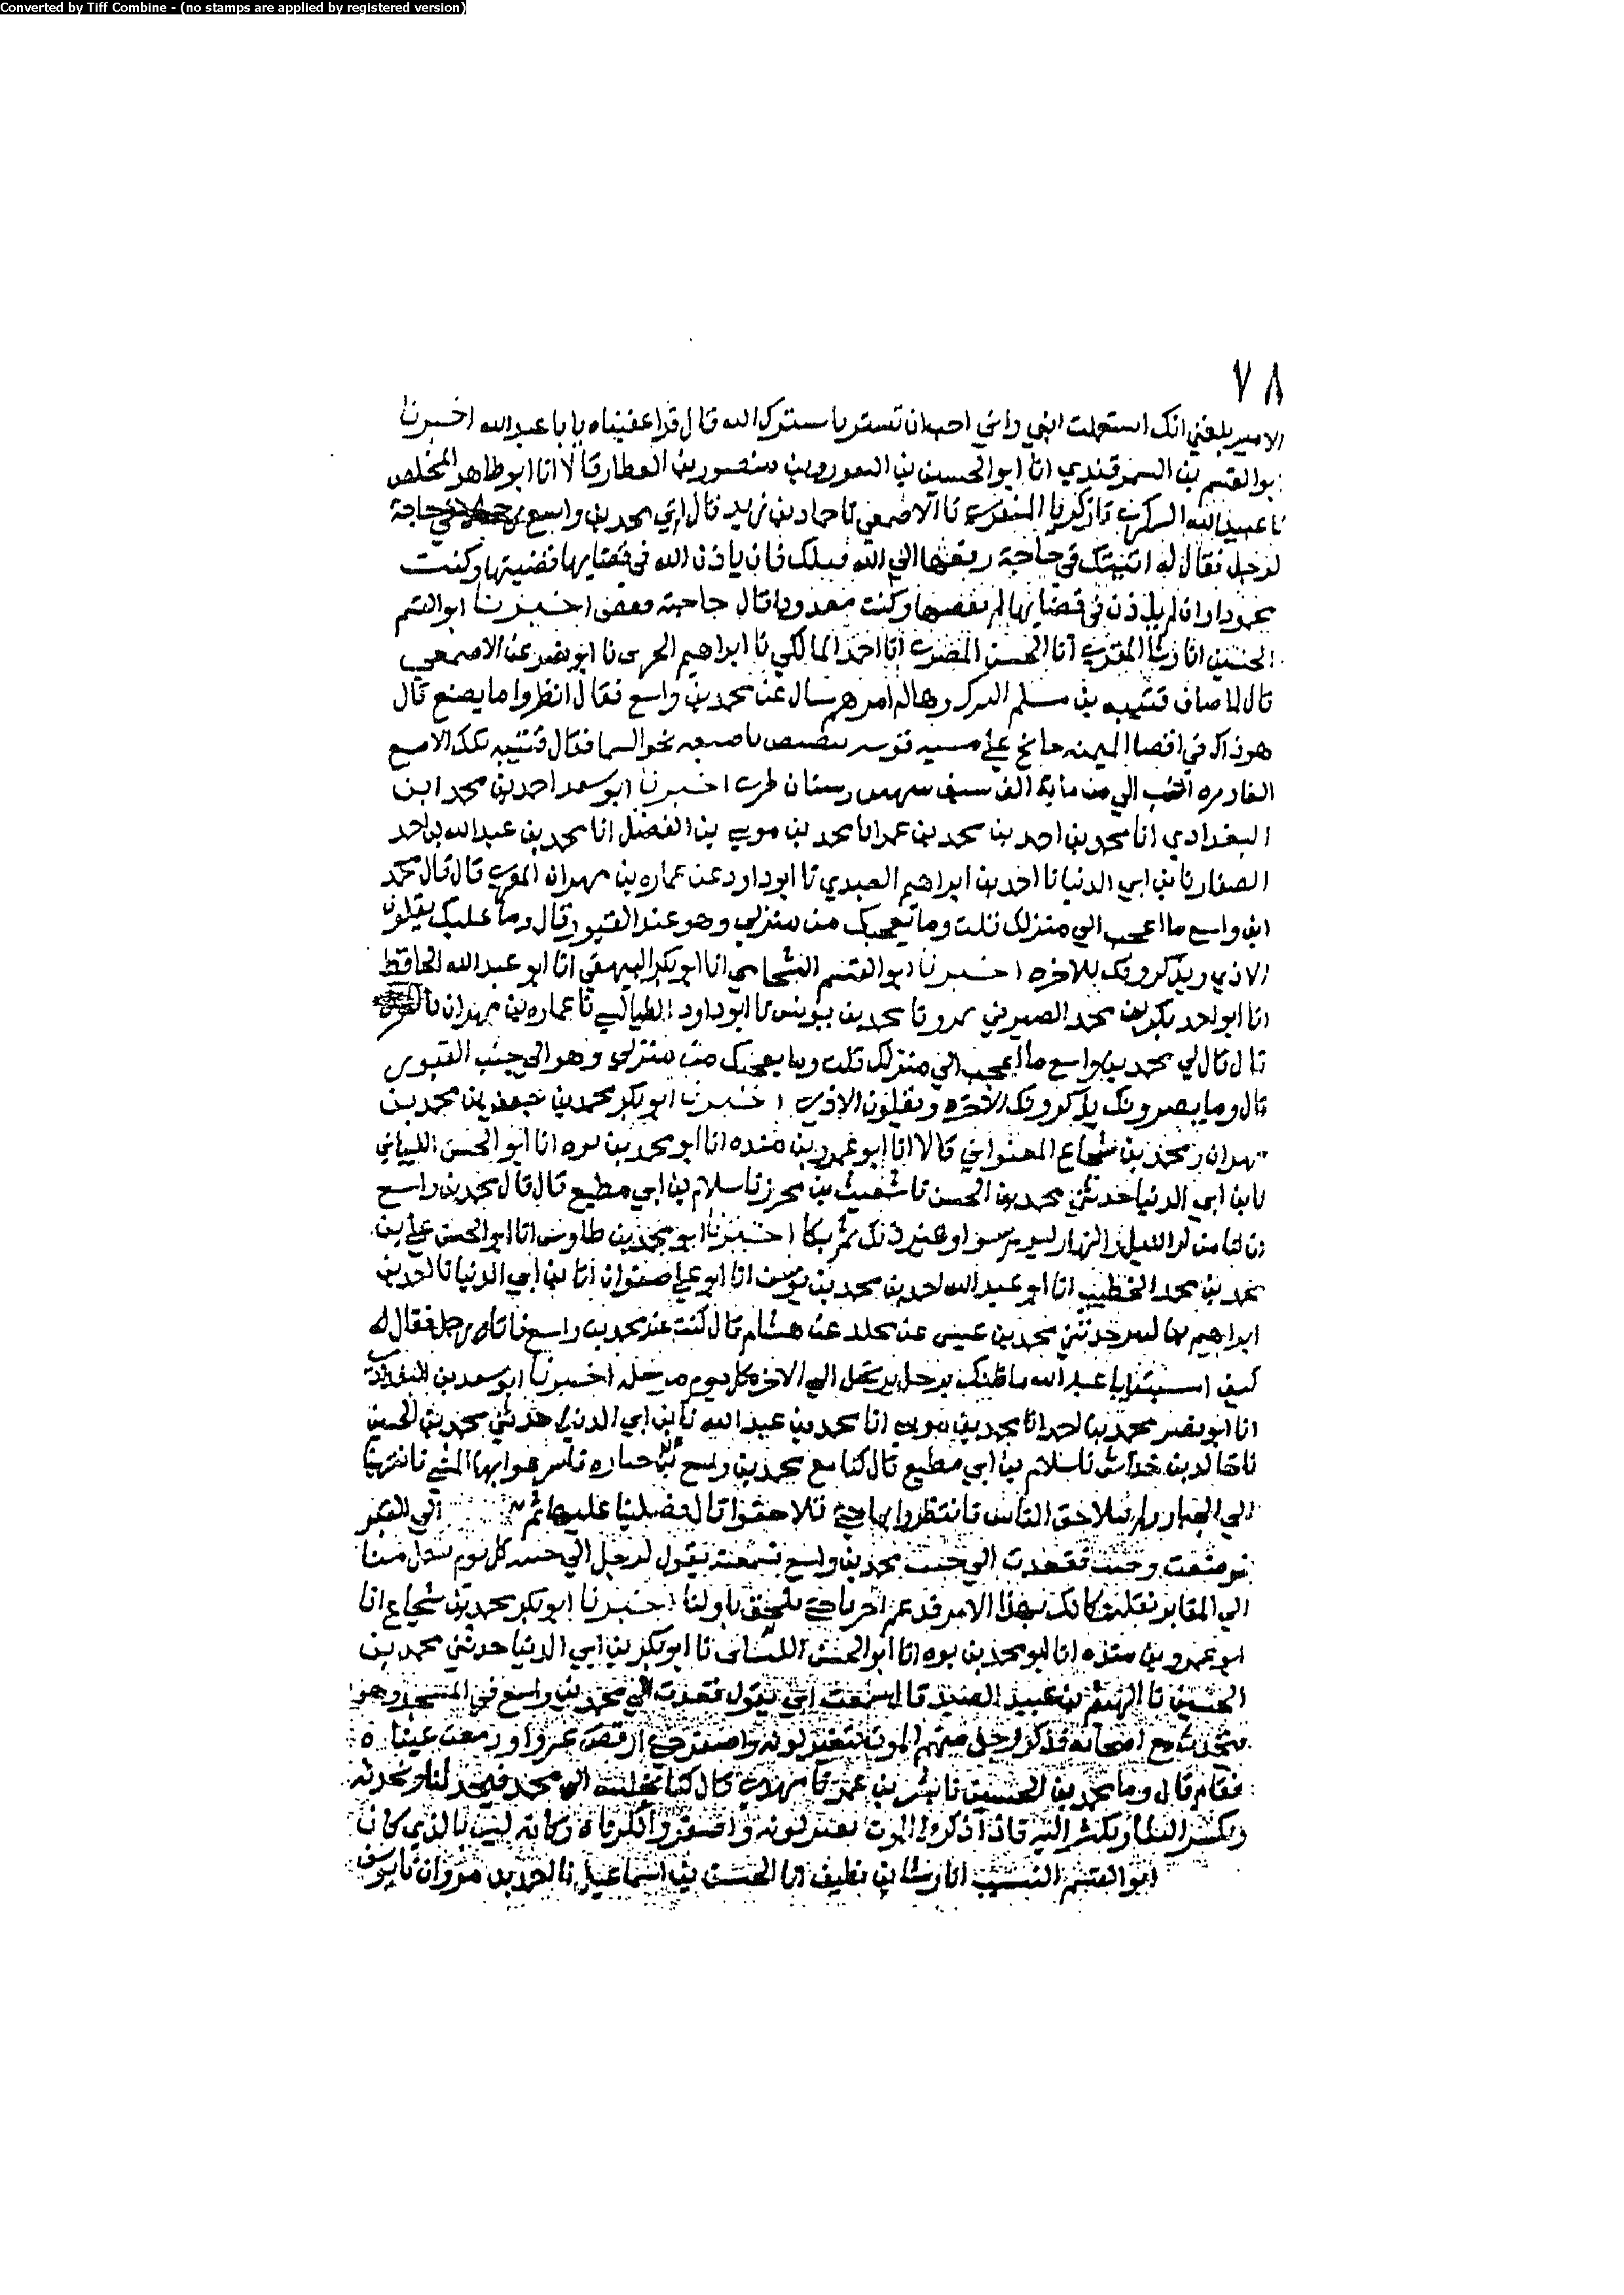 Converted by Tiff Combine - (no stamps are applied by registered version)
٧٨
الامير بلغني انك استعملت ابني واني احب ان تستر يا سترك الله قال قد اعفيناه يا با عبد الله اخبرنا
ابو القسم بن السمرقندي انا ابو الحسين بن النعور وبن منصور بن العطار قالا انا ابو طاهر المخلص
نا عبيد الله السكري نا زكريا المنقري نا الاصمعي نا حماد بن زيد قال اتي محمد بن واسع حاجة
لرجل فقال له اتيتك في حاجة رفعتها الي الله قبلك فان ياذن الله في قضايها قضيتها وكنت
محمودا وان لم ياذن في قضايها لم تقضها وكنت معذورا قال حاجته فقضى اخبرنا ابو القسم
الحسيني انا رشا المقري انا الحسن المصري انا احمد المالكي نا ابراهيم الحربي نا ابو نصر عن الاصمعي
قال لما صاف قتيبه بن مسلم الترك وهاله امرهم سال عن محمد بن واسع فقال انظروا ما يصنع قال
هو ذاك في اقصا الميمنه جانح علي سيه قوسه يبصبص باصبعه نحو السما فقال قتيبه تلك الاصبع
الفارده احب الي من ماية الف سيف اخبرنا ابو سعد احمد بن محمد ابن
البغدادي انا محمد بن احمد بن محمد بن عمر انا محمد بن موسي بن الفضل انا محمد بن عبد الله بن احمد
الصفار نا بن ابي الدنيا نا احمد بن ابراهيم العبدي نا ابو داود عن عماره بن مهران المعولي قال قال محمد
ابن واسع ما اعجب الي منزلك قلت وما يعجبك من منزلي وهو عند القبور قال وما عليك يقلون
الاذي ويذكرونك بالاخره اخبرنا ابو القسم الشحامي انا ابو بكر البيهقي انا ابو عبد الله الحافظ
انا ابو احمد بكر بن محمد الصيرفي بمرو نا محمد بن يونس نا ابو داود الطيالسي نا عماره بن مهران
قال قال لي محمد بن واسع ما اعجب الي منزلك قلت وما يعجبك من منزلي وهو الي جنب القبور
قال وما يضرونك يذكرونك الاخره ويقلون الاذي اخبرنا ابو بكر محمد بن جعفر بن محمد بن
مهران ومحمد بن شجاع قالا انا ابو عمرو بن منده انا ابو محمد بن يوه انا ابو الحسن اللبناني
نا ابن ابي الدنيا حدثني محمد بن الحسن نا شعيث بن محرز نا سلام بن ابي مطيع قال قال محمد بن واسع
ثم بكا اخبرنا ابو محمد بن طاوس انا ابو الحسن علي بن
محمد بن محمد الخطيب انا ابو عبد الله احمد بن محمد بن يوسف انا ابو علي صفوان انا بن ابي الدنيا نا احمد بن
ابراهيم حدثني محمد بن عيسى عن مخلد عن هشام قال كنت عند محمد بن واسع فاتاه رجل فقال له
كيف امسيت يا با عبد الله ما ظنك برجل يرتحل الي الاخره كل يوم مرحله اخبرنا ابو سعد بن البغدادي
انا ابو نصر محمد بن احمد انا محمد بن موسي انا محمد بن عبد الله نا بن ابي الدنيا حدثني محمد بن الحسين
نا خالد بن خداش نا سلام بن ابي مطيع قال كنا مع محمد بن واسع في جنازه فاسرعوا بها المشي فانتهينا
الي الجبان ولم يتلاحق الناس فانتظروا بها حتي تلاحقوا قال فصلينا عليها ثم الي القبر
ثم وضعت وجئت فقعدت الي جنب محمد بن واسع فسمعته يقول لرجل الي جنبه كل يوم ينقل منا
الي المقابر نقلة كانك بهذا الامر قد عم اخرنا حتي يلحق باولنا اخبرنا ابو بكر محمد بن شجاع انا
ابو عمرو بن منده انا ابو محمد بن يوه انا ابو الحسن اللبناني نا ابو بكر بن ابي الدنيا حدثني محمد بن
الحسين نا الهيثم بن عبيد الصيد قال سمعت ابي يقول قعدت الي محمد بن واسع في المسجد وهو
يتحدث مع اصحابه فذكر رجل منهم الموت فتغير لونه واصفر حتي ارفض عرقا ودمعت عيناه
فقام قال ونا محمد بن الحسين نا بشر بن عمر نا مهدي قال كنا نجلس الي محمد فيحدثنا ونحدثه
ويكثر الينا ونكثر اليه فاذا ذكروا الموت تغير لونه واصفر وانكرناه وكانه ليس بالذي كان
ابو القسم النسيب انا رشا بن نظيف انا الحسن بن اسماعيل نا احمد بن مروان نا يوسف